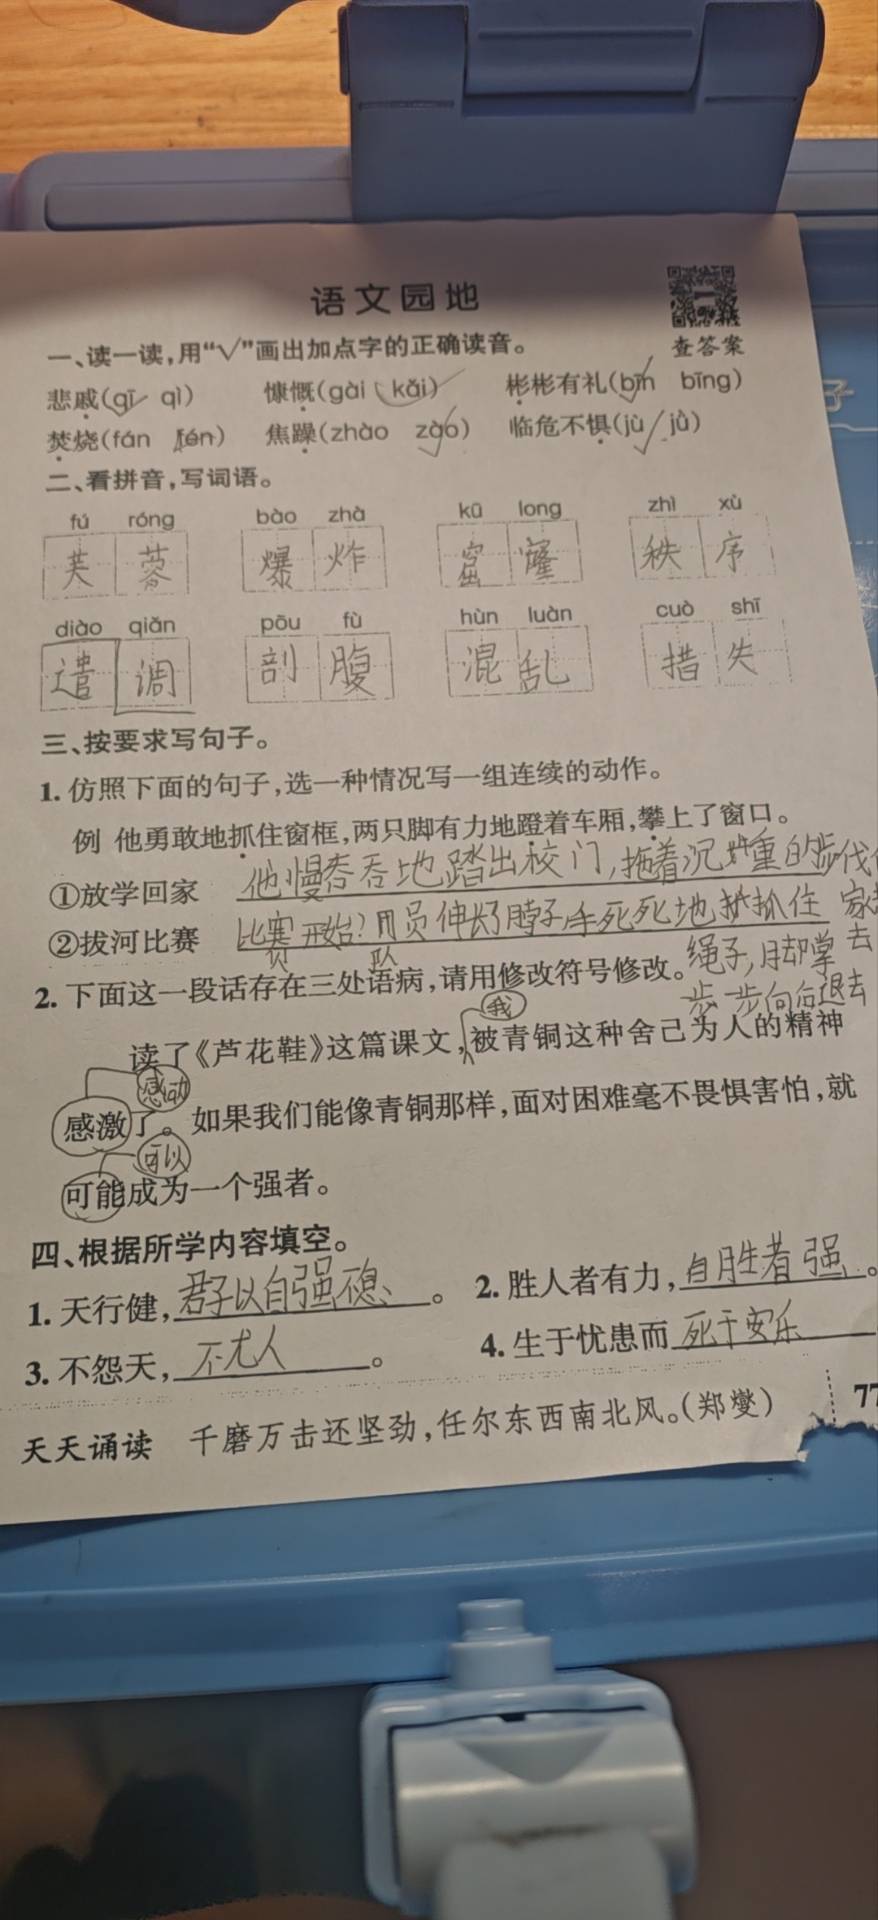 语文园地
查答案
一、读一读,用“√”画出加点字的正确读音。
悲戚(qī√ qì) 慷慨(gài kǎi√) 彬彬有礼(bīn√ bīng)
焚烧(fán fén) 焦躁(zhào zào√) 临危不惧(jù√ jǜ)
二、看拼音,写词语。
fú róng bào zhà kū long zhì xù
芙蓉 爆炸 窟窿 秩序
diào qiǎn pōu fù hùn luàn cuò shī
遣调 剖腹 混乱 措失
三、按要求写句子。
1. 仿照下面的句子,选一种情况写一组连续的动作。
例 他勇敢地抓住窗框,两只脚有力地蹬着车厢,攀上了窗口。
①放学回家 他慢吞吞地踏出校门,拖着沉重的步伐
②拔河比赛 比赛开始?队员伸长脖子,手死死地抓住
家
去
绳子,脚掌
一步一步向后退去
2. 下面这一段话存在三处语病,请用修改符号修改。
我
读了《芦花鞋》这篇课文,被青铜这种舍己为人的精神
感动
感激了。如果我们能像青铜那样,面对困难毫不畏惧害怕,就
可以
可能成为一个强者。
四、根据所学内容填空。
1. 天行健,君子以自强不息。 2. 胜人者有力,自胜者强。
3. 不怨天,不尤人。 4. 生于忧患而死于安乐
天天诵读 千磨万击还坚劲,任尔东西南北风。(郑燮)
77